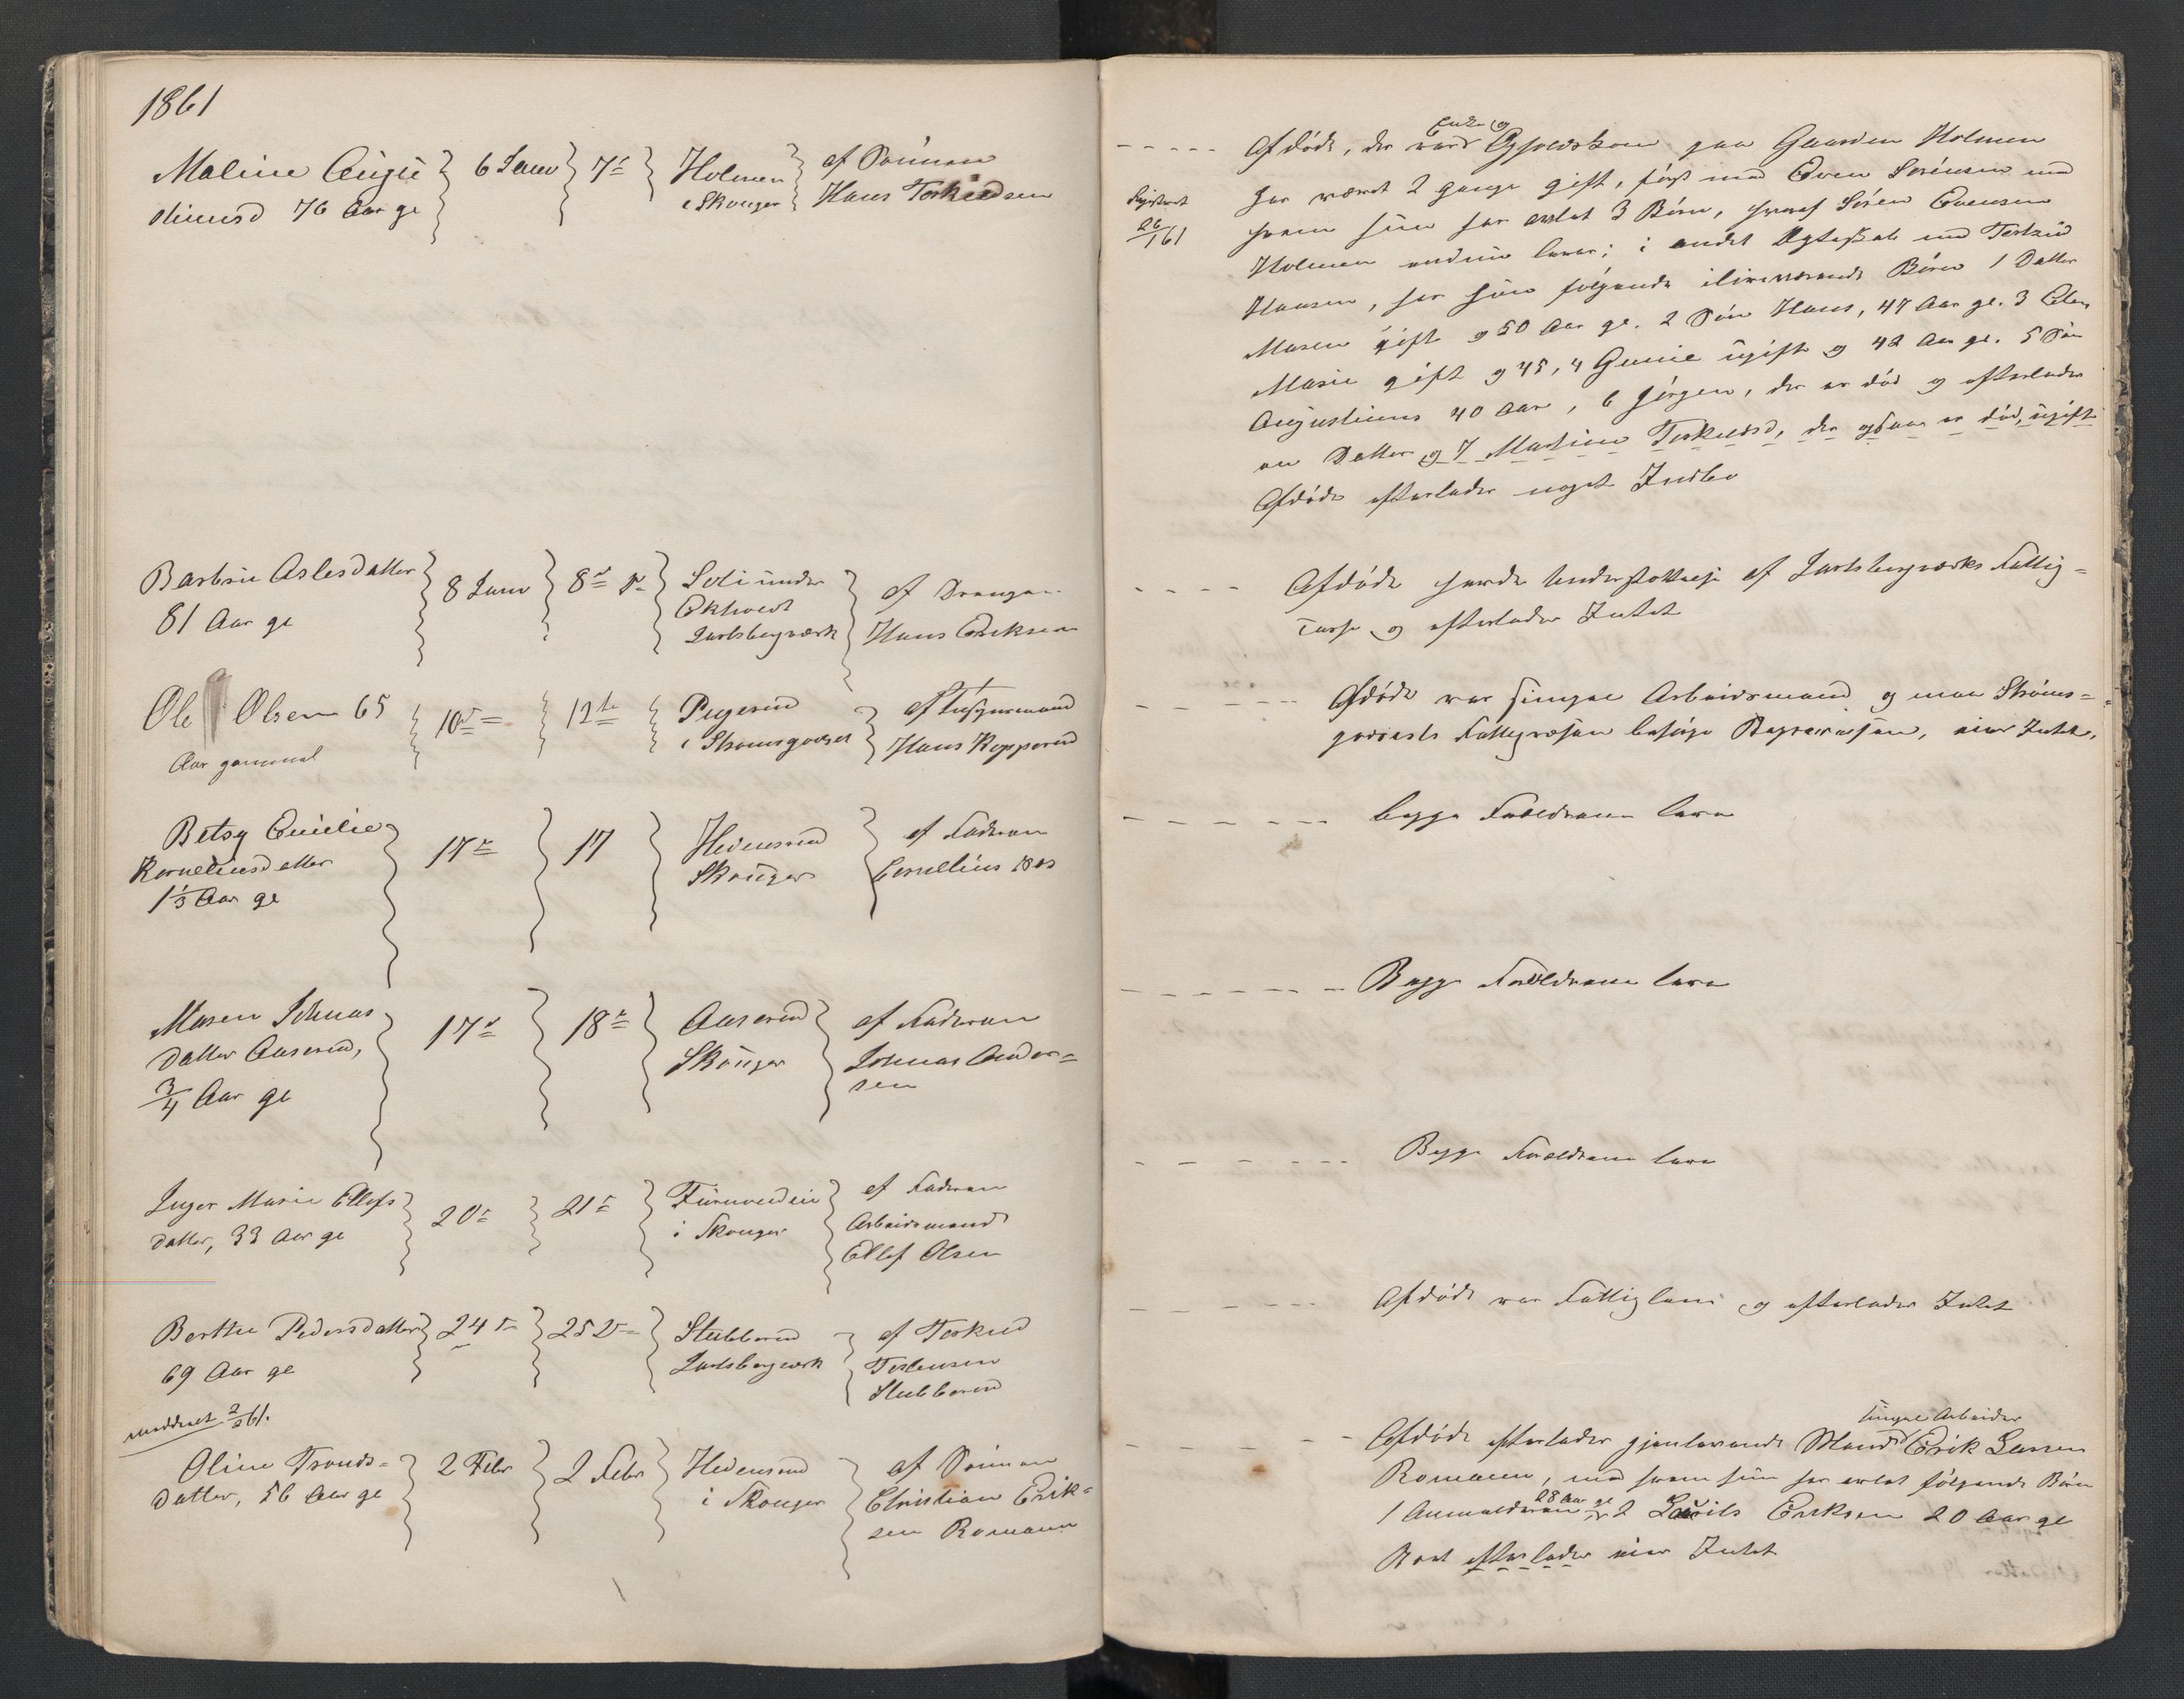 1861
Maline Augu
stinusd 76 Aar gl
6 Janr
7de
Holmen
i Skouger
af Sønnen
Hans Torkildsen
Barbrie Aslesdatter
81 Aar gl
8 Janr
8de
Soli under
Ekholt
Jarlsbergværk
af Drengen
Hans Eriksen
Ole Olsen 65
Aar gammel
10de
12te
Pugerud
i Strømsgodset
af Husmand
Hans Kopperud
Betsy Emilie
Korneliusdatter
1 1/3 Aar gl
17de
17
Hedensrud
Skouger
af Faderen
Cornelius
Maren Johnas
datter Aaserud,
3/4 Aar gl
17de
18de
Aaserud
Skouger
af Faderen
Johnas Ander=
sen
Inger Marie Ellefs
datter, 33 Aar gl
20de
21de
i Skouger
af Faderen
Arbeidsmand
Ellef Olsen
Berthe Pedersdatter
69 Aar gl
24de
25de
Stubberud
Jarlsbergværk
af Torkild
Torbensen
Stubberud
meddeelt 2/2 61.
Oline Tronds=
datter, 56 Aar gl
2 Febr
2 Febr
Hedensrud
i Skouger
af Sønnen
Christian Erik=
sen Romann
Enke og
Afdøde, der var Gjordskone paa Gaarden Holmen
Registreret
26/1 61
har været 2 gange gift, først med Even Sørensen med
hvem hun har avlet 3 Børn, hvoraf Søren Evensen
Holmen endnu lever; i andet Ægteskab med Torkild
Hansen, har hun følgende ilivewærende Børn 1 Datter
Maren gift og 50 Aar gl. 2 Søn Hans, 47 Aar gl. 3 Ellen
Marie gift og 45, 4 Gunie ugift og 42 Aar gl. 5 Søn
Augustinus 40 Aar, 6 Jørgen, der er død og efterlader
en Datter og 7 Martine Torkildsd, der ogsaa er død, ugift
Afdøde efterlader noget Indbo
Afdøde havde Understøttelse af Jarlsbergværks Fattig=
casse og efterlader Intet
Afdøde var simpel Arbeidsmand og maa Strøms=
godsets Fattigvæsen besørge Begravelsen, eier Intet.
begge Forældrene leve
Begge Forældrene leve
Begge Forældrene leve
Afdøde var Fattiglem og efterlader Intet
simpel Arbeider
Afdøde efterlader gjenlevende Mand Erik Larsen
Romann, med hvem hun har avlet følgende Børn
28 Aar gl
1 Anmelderen 2 Laurits Eriksen 20 Aar gl
Boet efterlader eier Intet